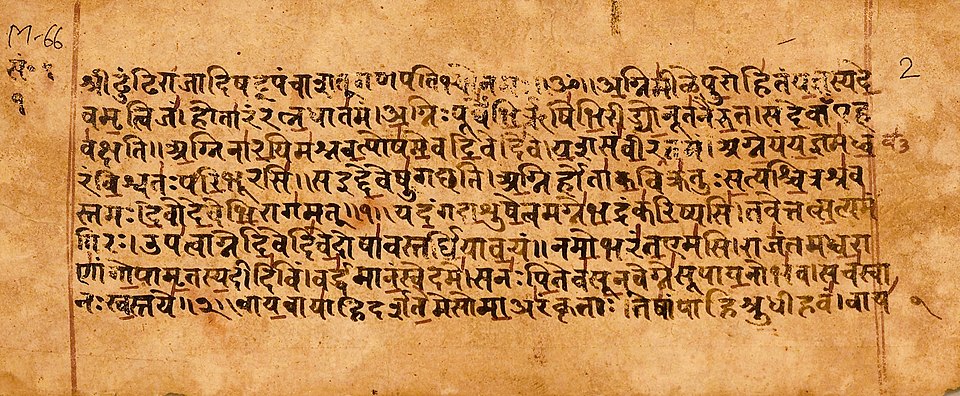 M-66
2
१
श्रीढुंढिराजादिषट्पंचाशत्गणपतिभ्योनमः॥ॐ॥अग्निमीळेपुरोहितंयज्ञस्यदे
वमृत्विजं। होतारंरत्नधातमं। अग्निःपूर्वेभिर्ऋषिभिरीड्योनूतनैरुत। सदेवाँएह
वक्षति॥अग्निनारयिमश्नवत्पोषमेवदिवेदिवे। यशसंवीरवत्तमं। अग्नेयंयज्ञमध्व
रंविश्वतःपरिभूरसि॥सइद्देवेषुगछति। अग्निर्होताकविक्रतुःसत्यश्चित्रश्रव
स्तमः।देवोदेवेभिरागमत्॥१॥यदंगदाशुषेत्वमग्नेभद्रंकरिष्यसि।तवेत्तत्सत्यमं
गिरः।उपत्वाग्नेदिवेदिवेदोषावस्तर्द्धियावयं॥नमोभरंतएमसि।राजंतमध्वरा
णांगोपामृतस्यदीदिविं।वर्द्धमानंस्वेदमे।सनःपितेवसूनवेग्नेसूपायनोभव।सचस्वा
नःस्वस्तये॥२॥वायवायाहिदर्शतेमेसोमाअरंकृताः।तेषांपाहिश्रुधीहवं।वाय
१